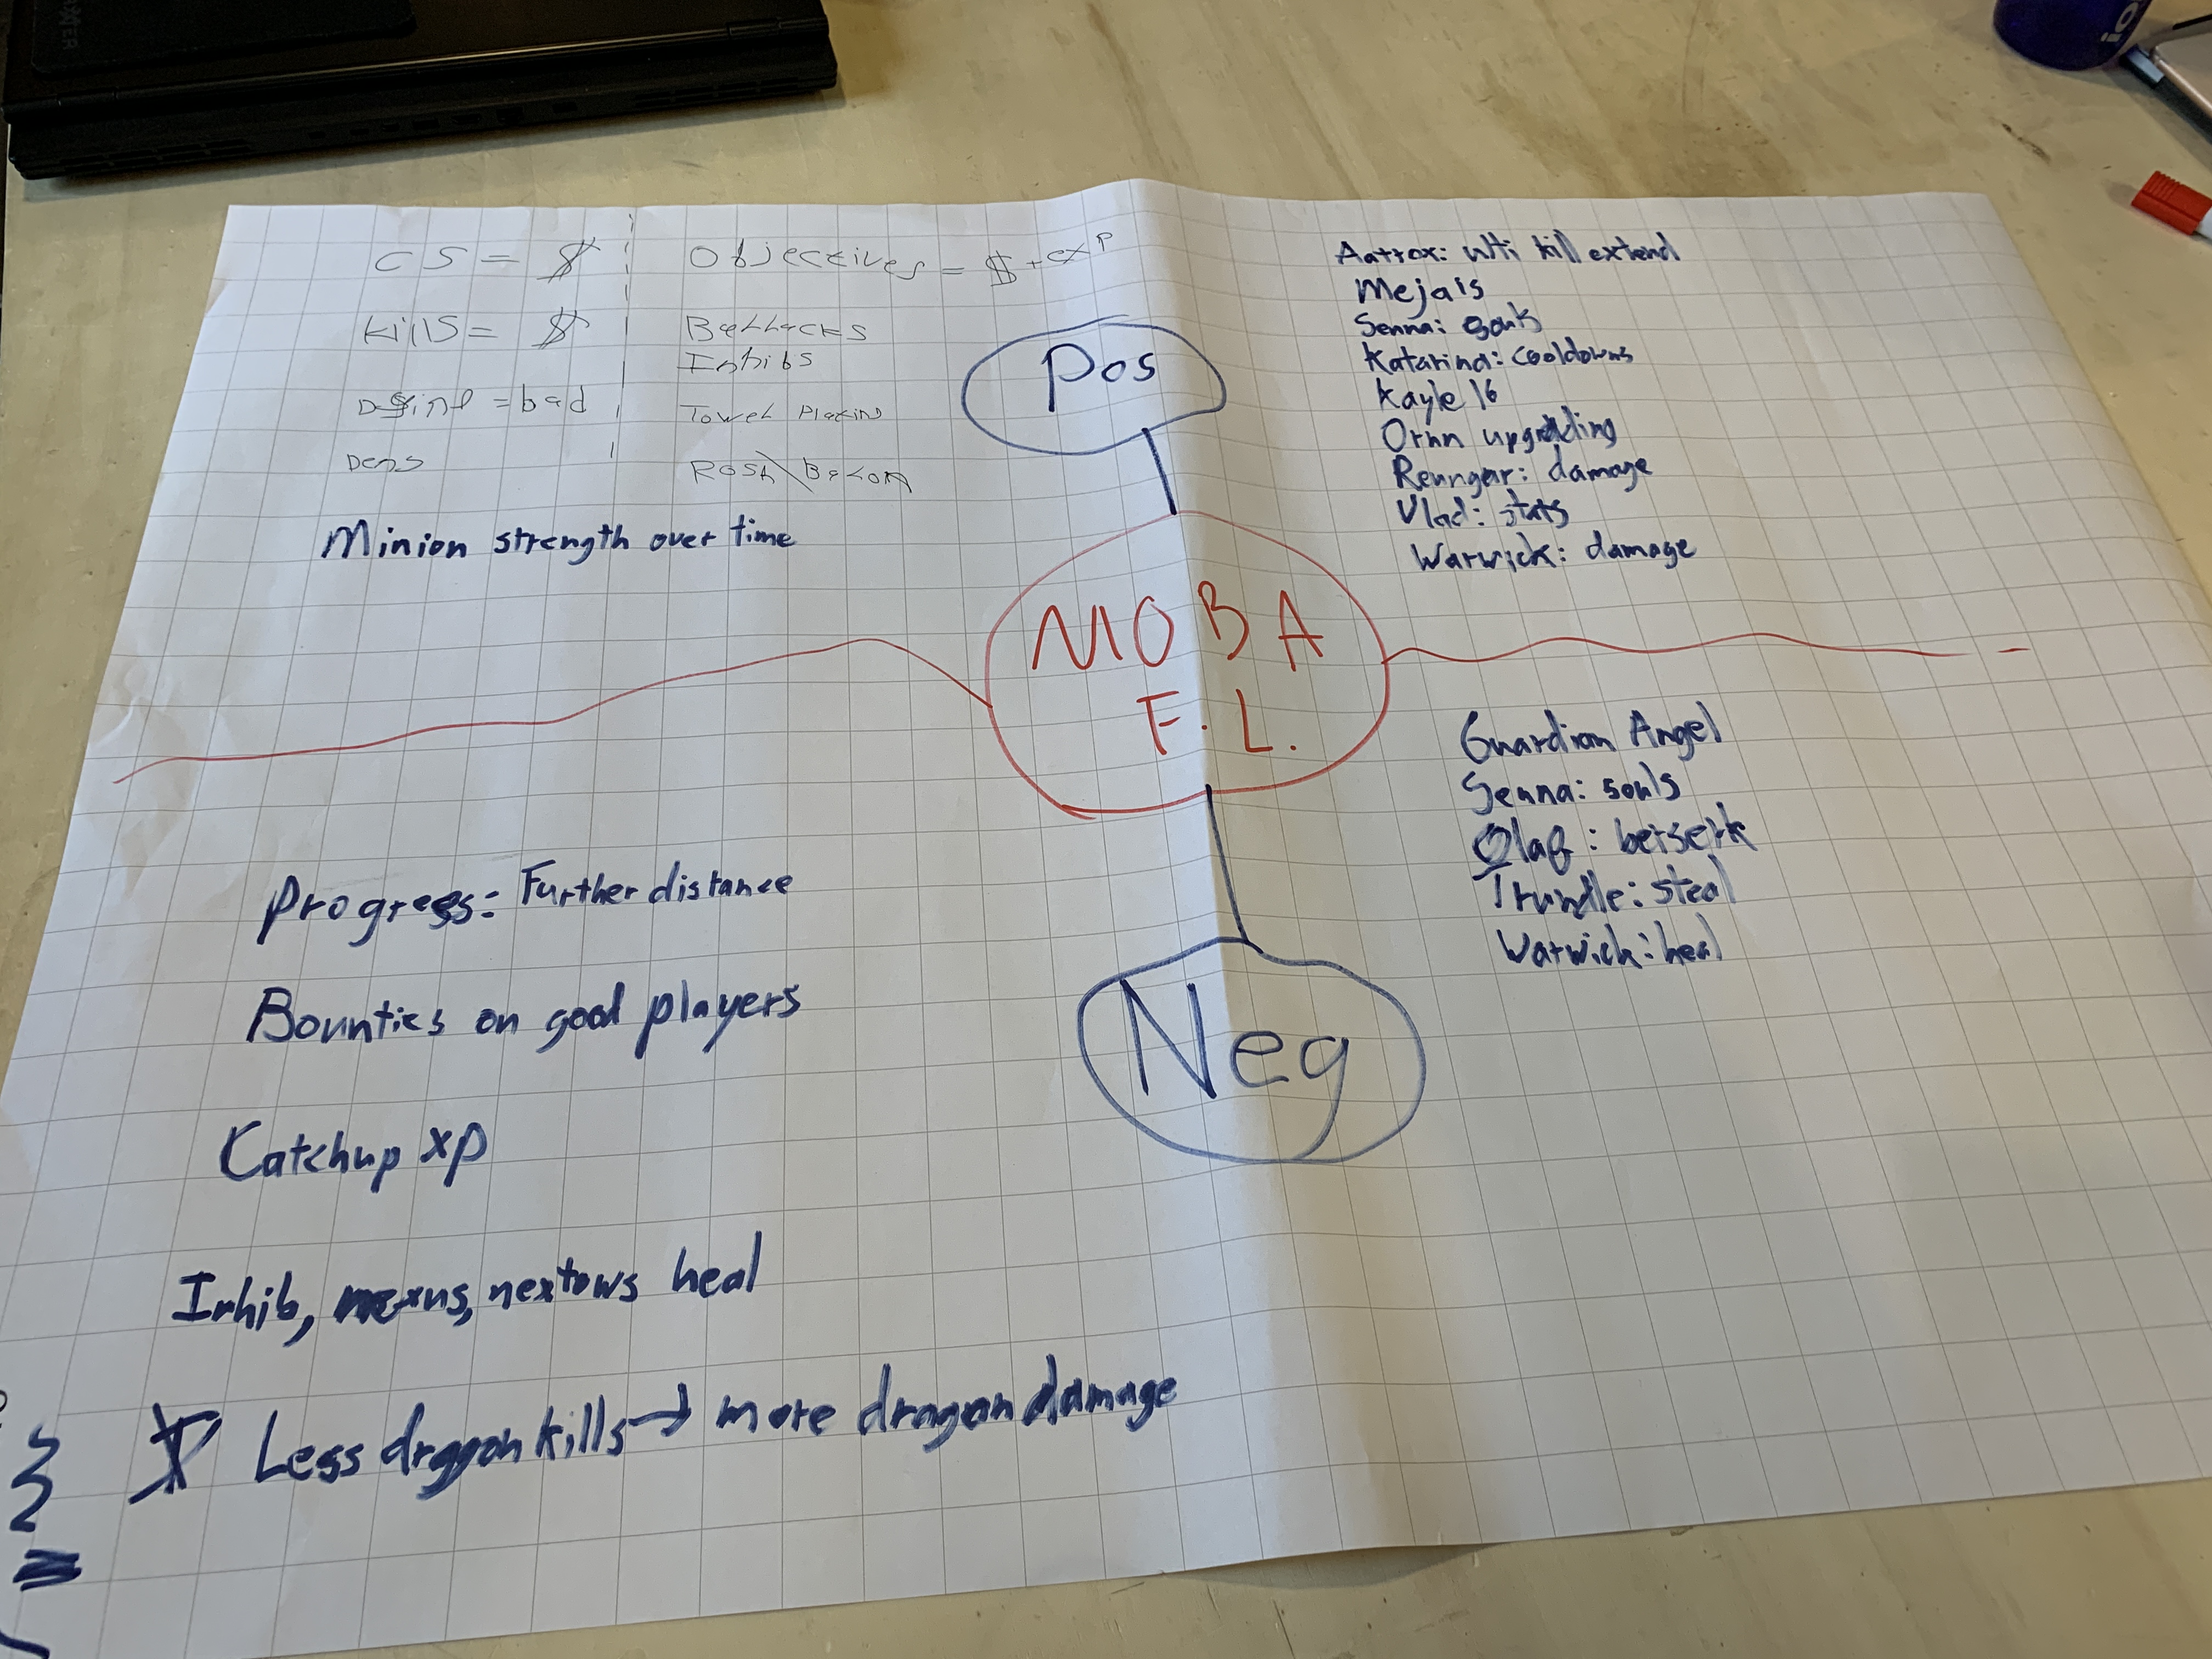 CS = $
Kills = $
= bad
Objectives = $ + exp
Inhibs
Minion strength over time
Pos
Aatrox: ulti kill extend
Mejais
Senna: souls
Katarina: cooldowns
Kayle 16
Ornn upgrading
Reungar: damage
Vlad: stats
Warwick: damage
MOBA
F.L.
Guardian Angel
Senna: souls
Olaf: berserk
Trundle: steal
Warwick: heal
Progress: Further distance
Bounties on good players
Catchup xp
Inhib, nexus, nextows heal
Less dragon kills → more dragon damage
Neg